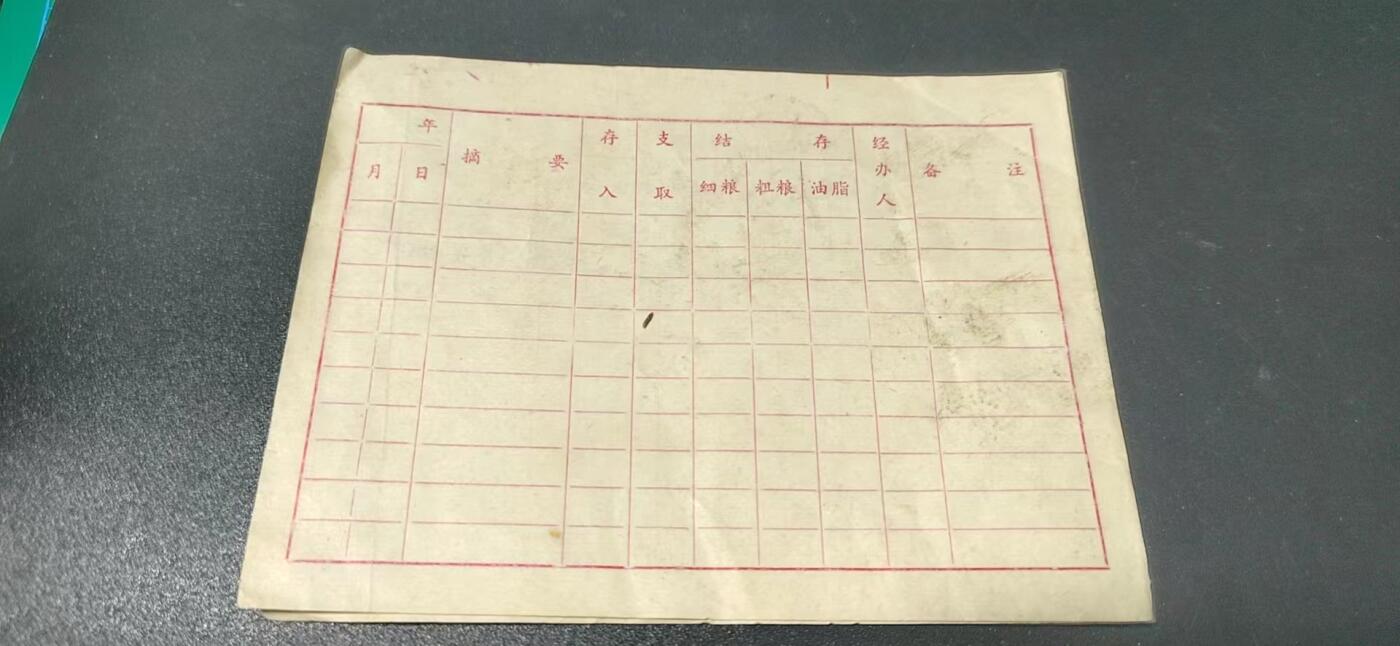 年
月 日
摘 要
存入
支取
结 存
细粮 粗粮 油脂
经办人
备 注